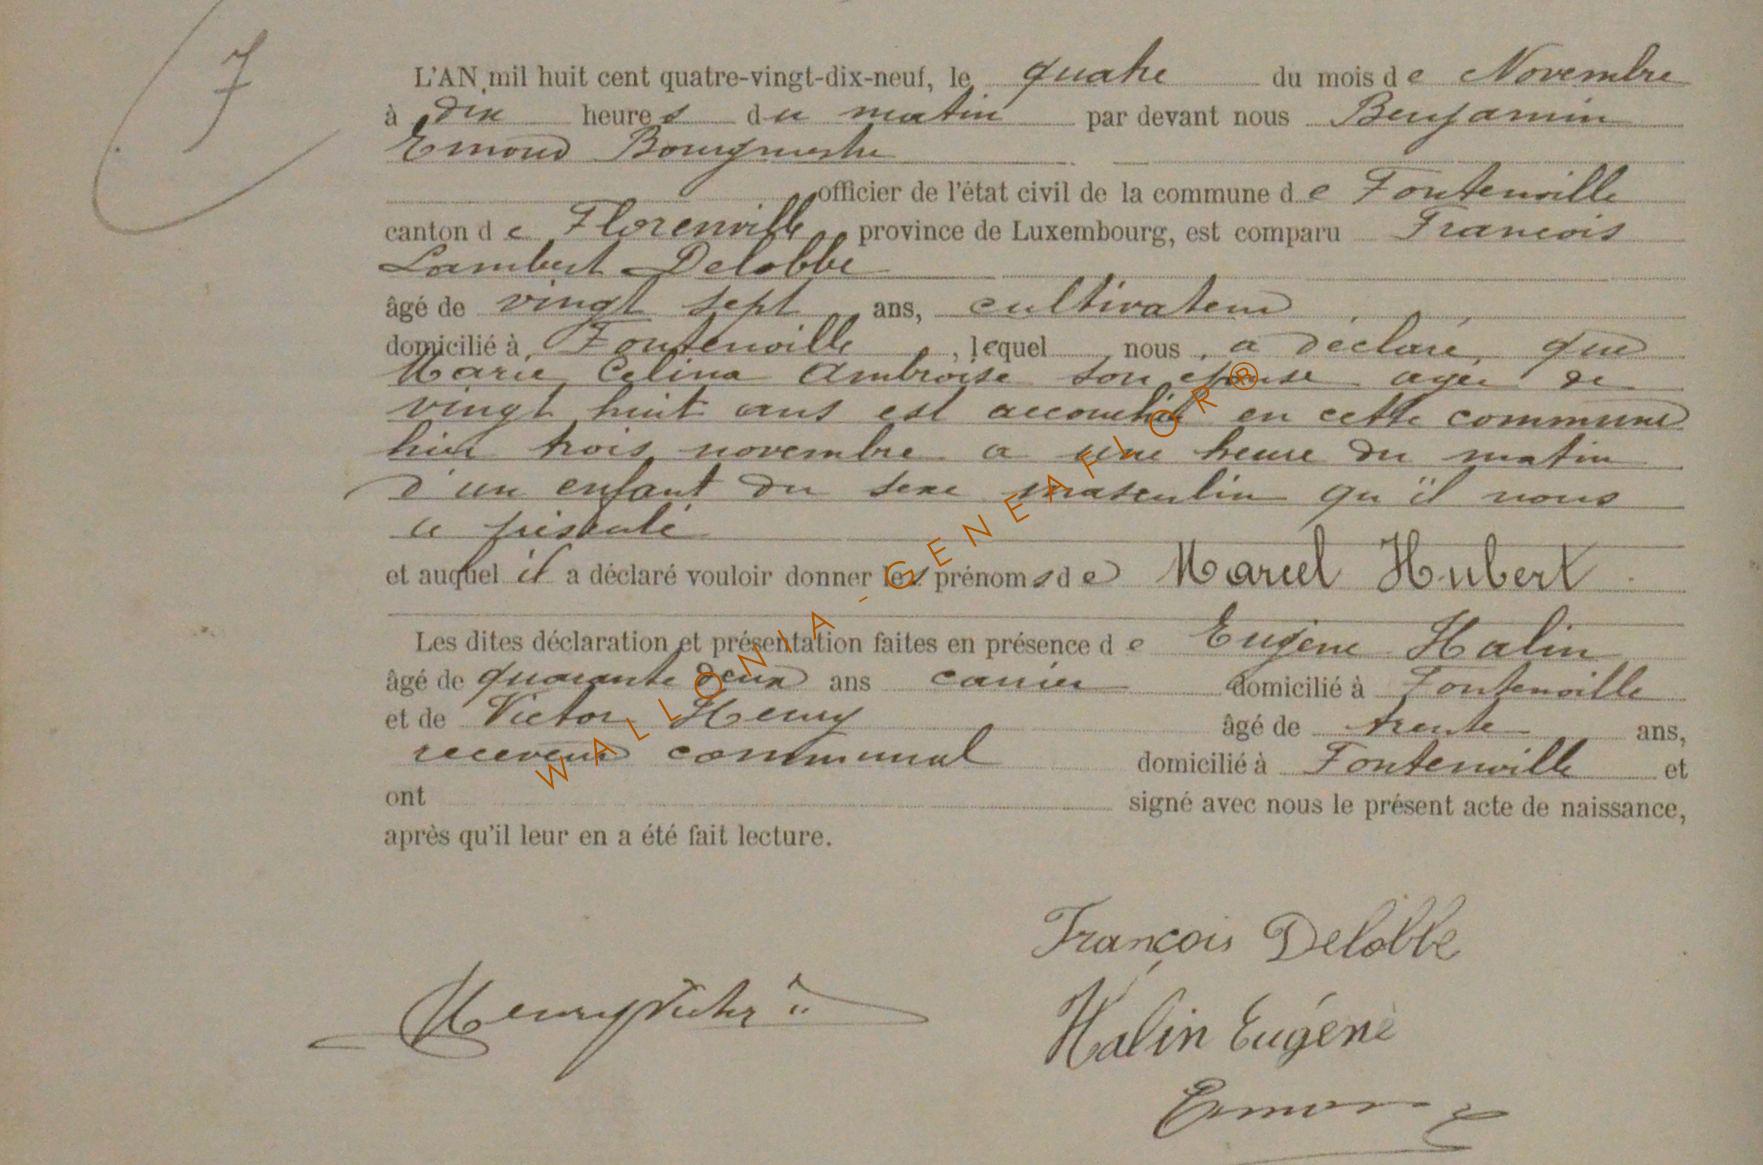 7
L'AN mil huit cent quatre-vingt-dix-neuf, le quatre du mois de Novembre
à dix heures du matin par devant nous Benjamin
Emond Bourgmestre
officier de l'état civil de la commune de Fontenoille
canton de Florenville province de Luxembourg, est comparu Francois
Lambert Delobbe
âgé de vingt sept ans, cultivateur
domicilié à Fontenoille, lequel nous a déclaré que
Marie Celina Ambroise son épouse agée de
vingt huit ans est accouchée en cette commune
hier trois novembre a une heure du matin
d'un enfant du sexe masculin qu'il nous
a présenté
et auquel il a déclaré vouloir donner les prénoms de Marcel Hubert.
Les dites déclaration et présentation faites en présence de Eugène Halin
âgé de quarante deux ans domicilié à Fontenoille
et de Victor Henry âgé de trente ans,
receveur communal domicilié à Fontenoille et
ont signé avec nous le présent acte de naissance,
après qu'il leur en a été fait lecture.
François Delobbe
Henry Victor
Halin Eugéne
Emond
WALLONIA-GENEAFLOR®